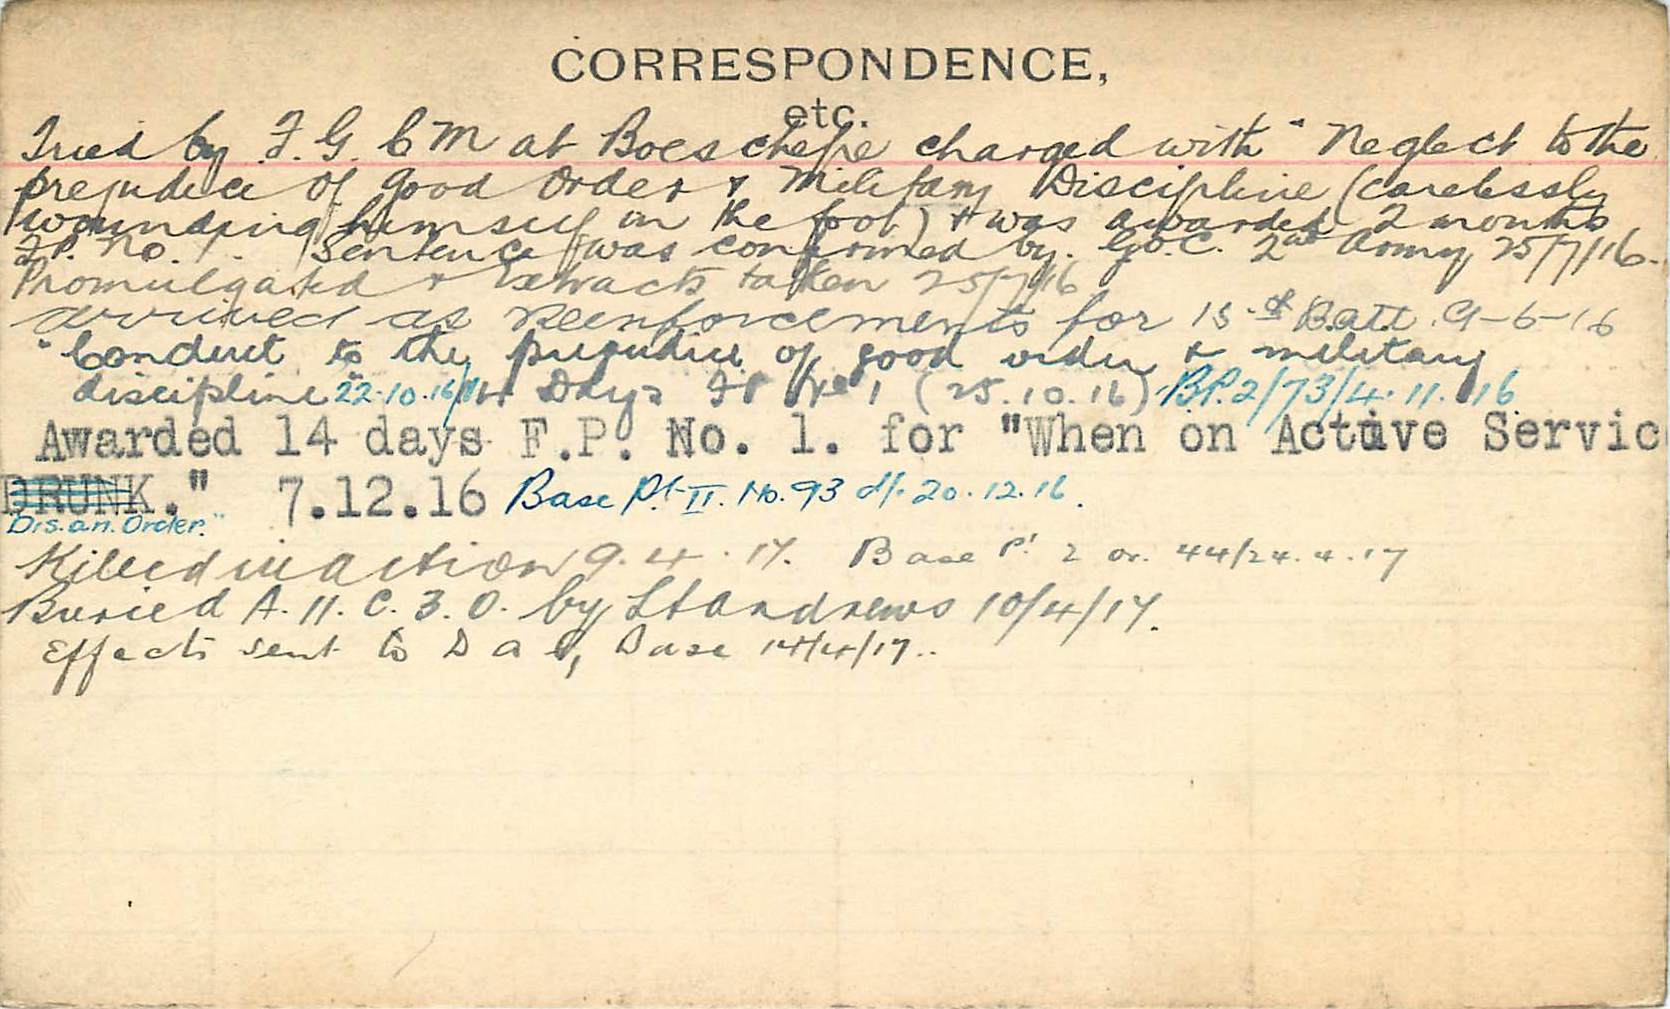 CORRESPONDENCE,
etc.
Tried by F. G. C M at Boeschepe charged with "Neglect to the
prejudice of Good Order & Military Discipline (carelessly
wounding himself in the foot) & was awarded 2 months
F.P. No. 1. Sentence was confirmed by. G.O.C. 2nd Army 25/7/16.
Promulgated & Extracts taken 25/7/16
arrived as Reenforcements for 15th Batt. 9-6-16
"Conduct to the prejudice of good order & military
discipline" 22.10.16 14 Days FP No 1 (25.10.16) B.P.2/73/4.11.16
Awarded 14 days F.P. No. 1. for "When on Active Servic
DRUNK." 7.12.16 Base Pt. II. No. 93 d/. 20.12.16.
Dis. an. Order."
Killed in action 9.4.17. Base Pt 2 or. 44/24.4.17
Buried A.11.C.3.0. by Lt Andrews 10/4/17.
Effects sent to D a G, Base 14/4/17..